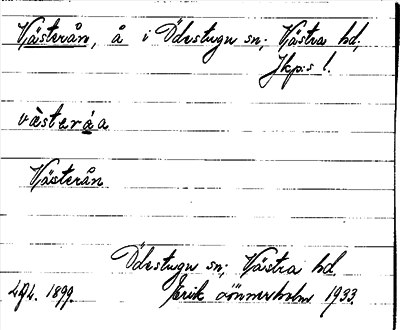 Västerån, å i Ödestugu sn; Västra hd,
Jkp:s l.
västeråa
Västerån
Ödestugu sn; Västra hd
1899. Erik Lönnerholm 1933.